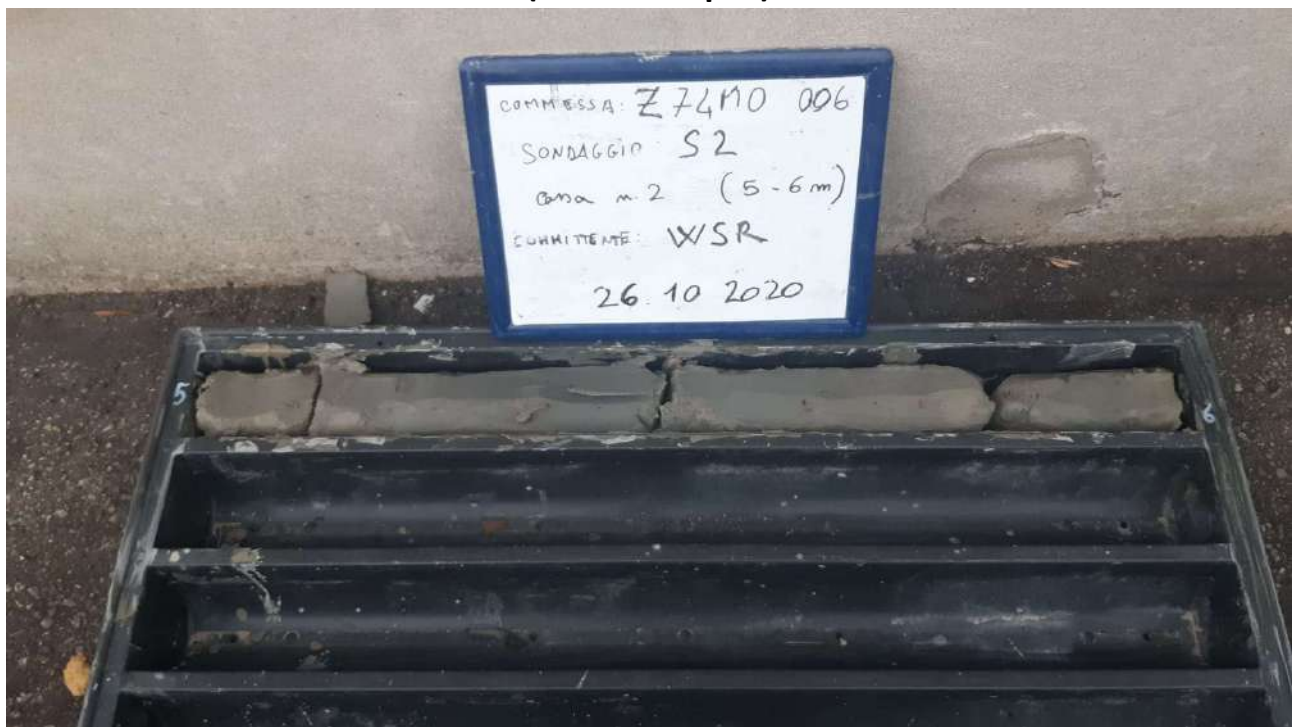 COMMESSA: Z74M0 006
SONDAGGIO S2
Cassa n. 2 (5-6m)
COMMITTENTE: WSR
26.10 2020
5
6